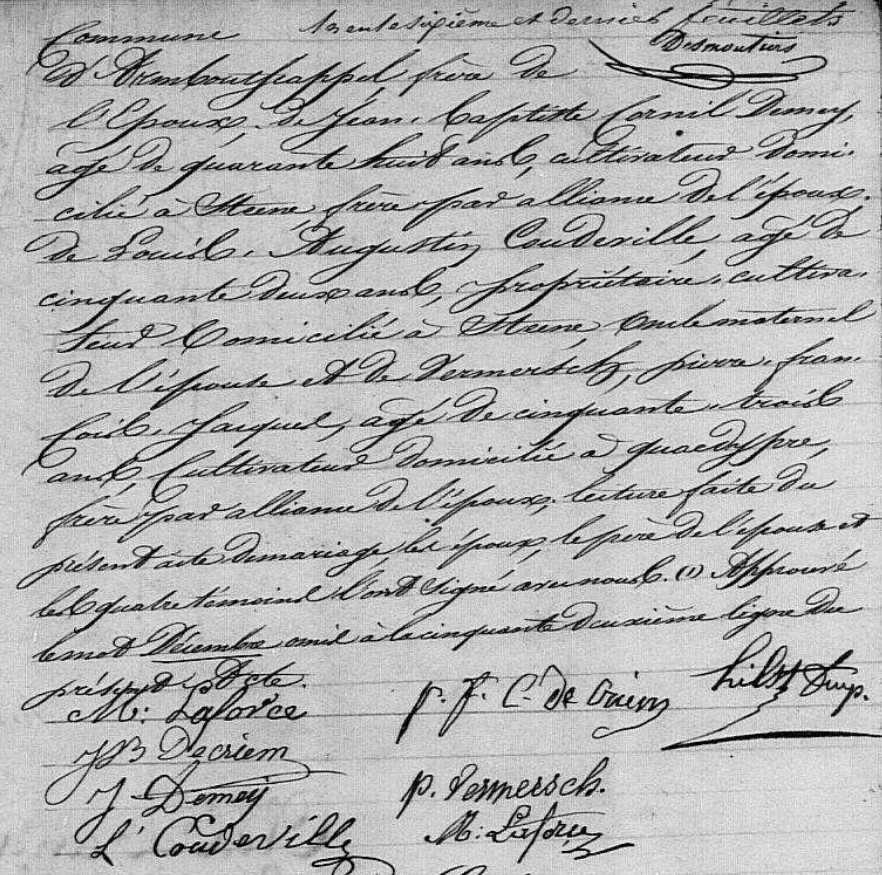 trente sixième et dernier feuillets
Desmoutiers
Commune
d'Armboutscappel, frère de
l'Epoux, de Jean. Baptiste Cornil Demey,
âgé de quarante huit ans, cultivateur domi-
cilié à Steene, frère par alliance de l'époux.
de Louis. Augustin Coudeville, agé de
cinquante deux ans, propriétaire. cultiva-
teur domicilié à Steene, oncle maternel
de l'épouse et de Vermersch, pierre. fran-
çois. Jacques, agé de cinquante. trois
ans, cultivateur domicilié à quaedypre,
frère par alliance de l'époux; lecture faite du
présent acte de mariage, les époux, le père de l'épouse et
les quatre témoins l'ont signé avec nous. (1) Approuvé
le mot Décembre omis à la cinquante deuxième ligne du
présent Acte.
M: Laforce
p. f. C. de
JB Decriem
J Demey
p. Vermersch.
L' Coudeville
M: Laforce